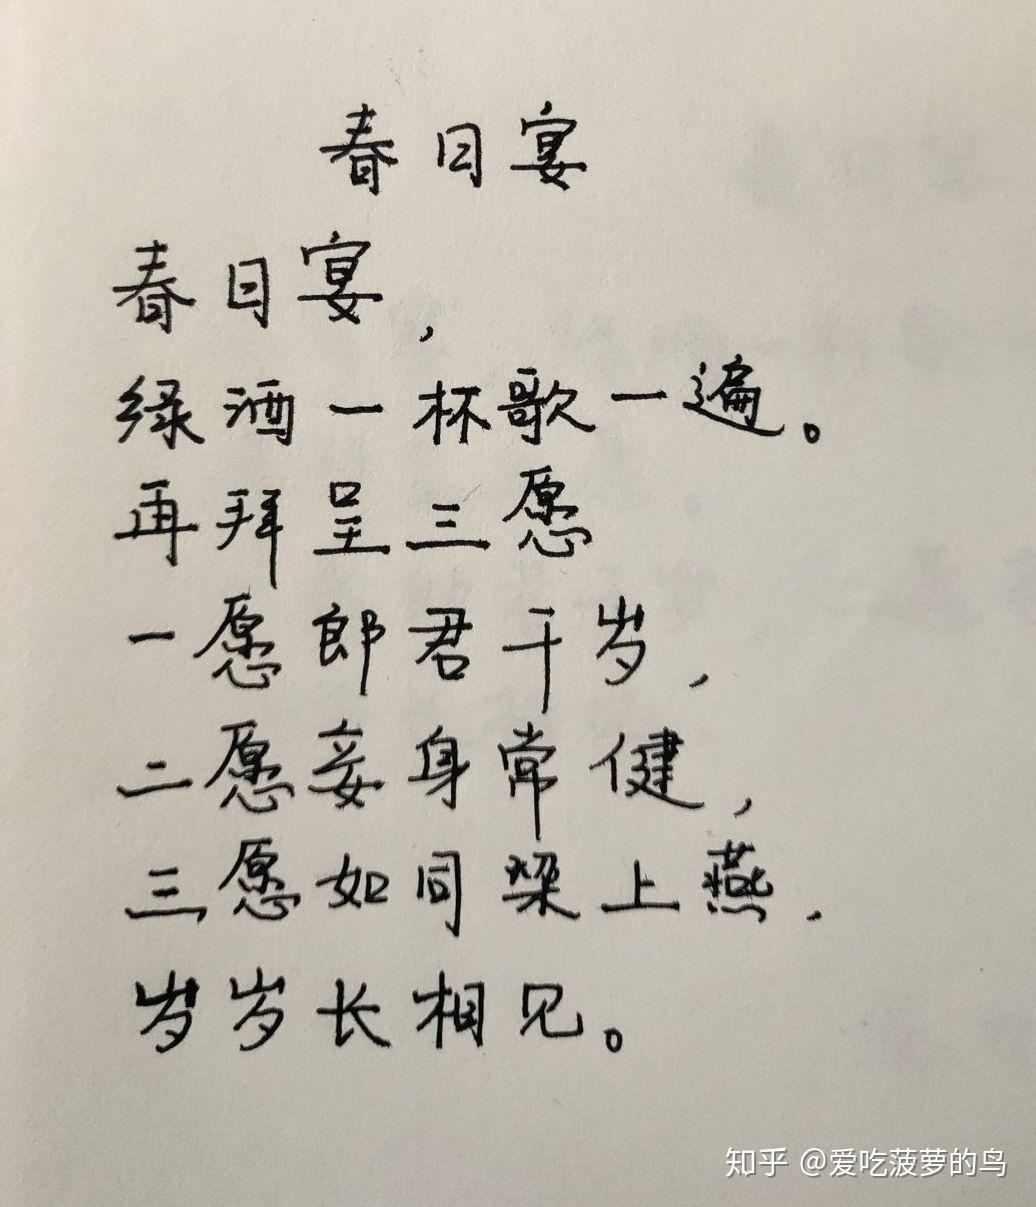 春日宴
春日宴，
绿酒一杯歌一遍。
再拜呈三愿
一愿郎君千岁，
二愿妾身常健，
三愿如同梁上燕，
岁岁长相见。
知乎 @爱吃菠萝的鸟